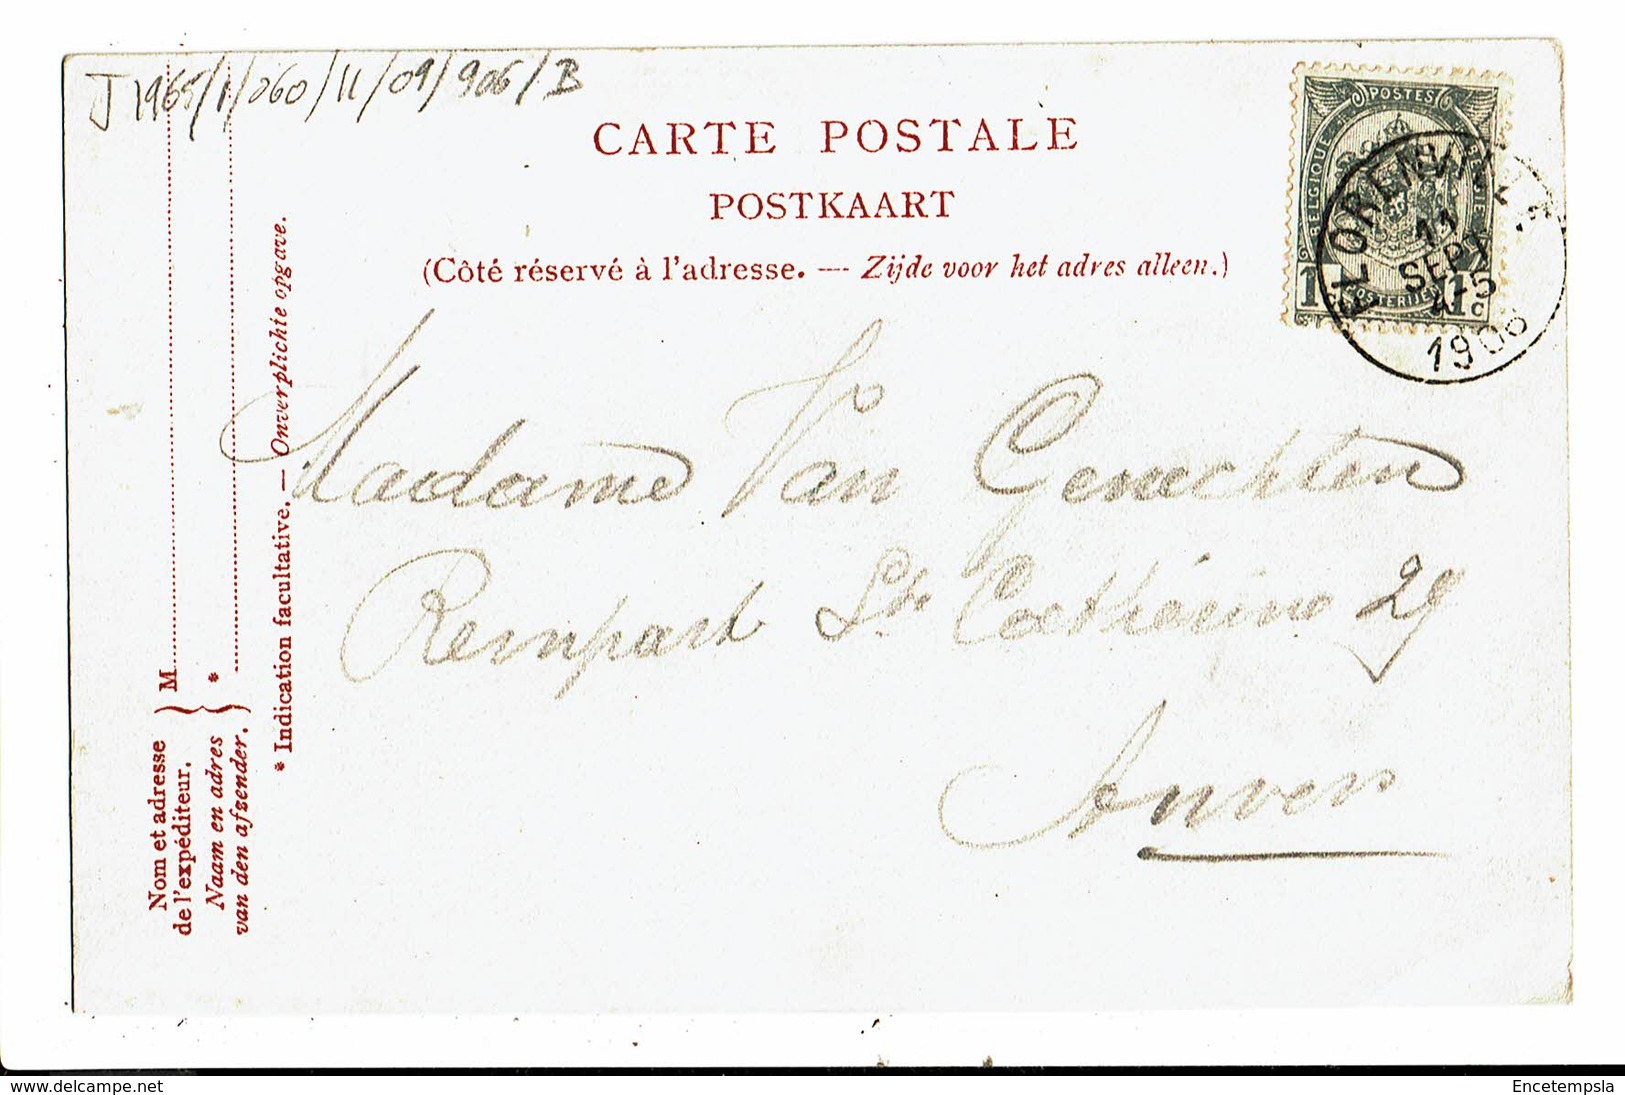 J1965/1/060/11/09/906/B
CARTE POSTALE
POSTKAART
(Côté réservé à l'adresse. — Zijde voor het adres alleen.)
POSTES
BELGIQUE
BELGIË
POSTERIJEN
1 1c
11
SEPT
1906
Madame Van Genechten
Rempart Ste Catherine 29
Anvers
Nom et adresse
de l'expéditeur. } M
Naam en adres
van den afzender. } *
* Indication facultative. — Onverplichte opgave.
www.delcampe.net
Encetempsla